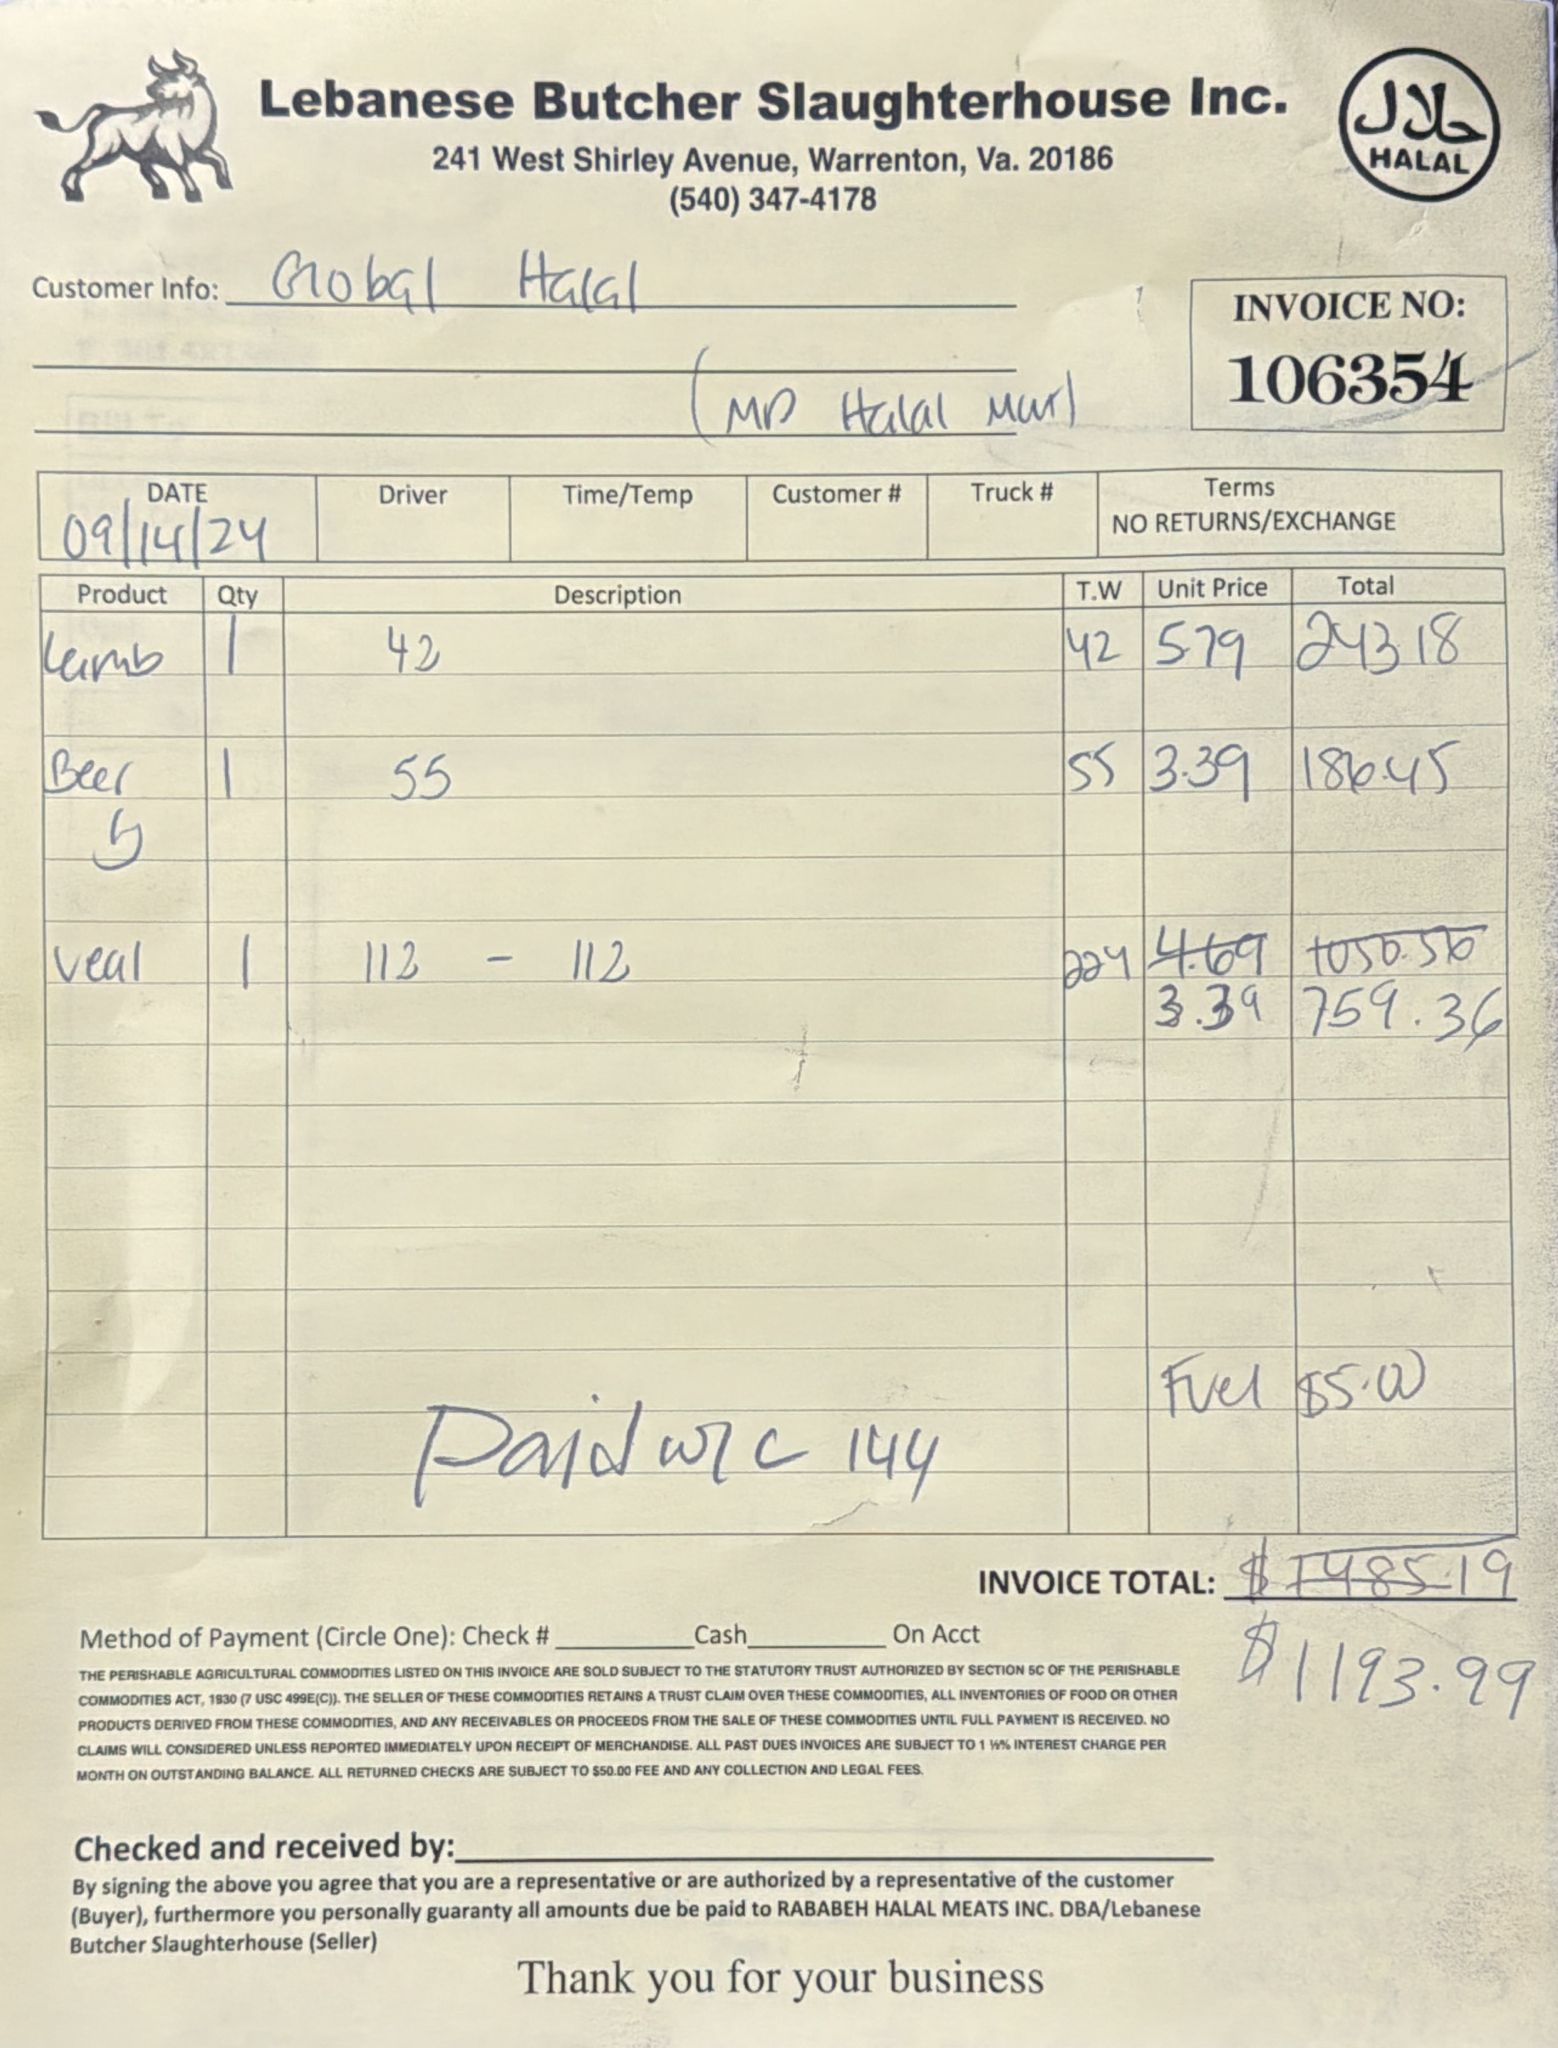 Lebanese Butcher Slaughterhouse Inc.
241 West Shirley Avenue, Warrenton, Va. 20186
(540) 347-4178
حلال
HALAL
Customer Info: Global Halal
(MD Halal Mart)
INVOICE NO:
106354
DATE Driver Time/Temp Customer # Truck # Terms
09/14/24 NO RETURNS/EXCHANGE
Product Qty Description T.W Unit Price Total
Lamb 1 42 42 579 243 18
Beef 1 55 55 3.39 186.45
veal 1 112 - 112 224 4.69 1050.56
3.39 759.36
Fuel $5.00
Paid w/ C 144
INVOICE TOTAL: $ 1485.19
$1193.99
Method of Payment (Circle One): Check # Cash On Acct
THE PERISHABLE AGRICULTURAL COMMODITIES LISTED ON THIS INVOICE ARE SOLD SUBJECT TO THE STATUTORY TRUST AUTHORIZED BY SECTION 5C OF THE PERISHABLE
COMMODITIES ACT, 1930 (7 USC 499E(C)). THE SELLER OF THESE COMMODITIES RETAINS A TRUST CLAIM OVER THESE COMMODITIES, ALL INVENTORIES OF FOOD OR OTHER
PRODUCTS DERIVED FROM THESE COMMODITIES, AND ANY RECEIVABLES OR PROCEEDS FROM THE SALE OF THESE COMMODITIES UNTIL FULL PAYMENT IS RECEIVED. NO
CLAIMS WILL CONSIDERED UNLESS REPORTED IMMEDIATELY UPON RECEIPT OF MERCHANDISE. ALL PAST DUES INVOICES ARE SUBJECT TO 1 ½% INTEREST CHARGE PER
MONTH ON OUTSTANDING BALANCE. ALL RETURNED CHECKS ARE SUBJECT TO $50.00 FEE AND ANY COLLECTION AND LEGAL FEES.
Checked and received by:
By signing the above you agree that you are a representative or are authorized by a representative of the customer
(Buyer), furthermore you personally guaranty all amounts due be paid to RABABEH HALAL MEATS INC. DBA/Lebanese
Butcher Slaughterhouse (Seller)
Thank you for your business